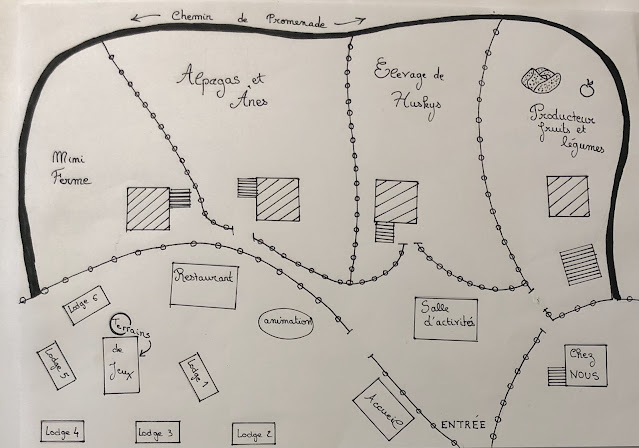 Chemin de Promenade
Alpagas et
Ânes
Elevage de
Huskys
Producteur
fruits et
légumes
Mini
Ferme
Restaurant
Lodge 6
Terrains
de
Jeux
animation
Salle
d'activités
Lodge 5
Lodge 1
Chez
NOUS
Accueil
ENTRÉE
Lodge 4
Lodge 3
Lodge 2